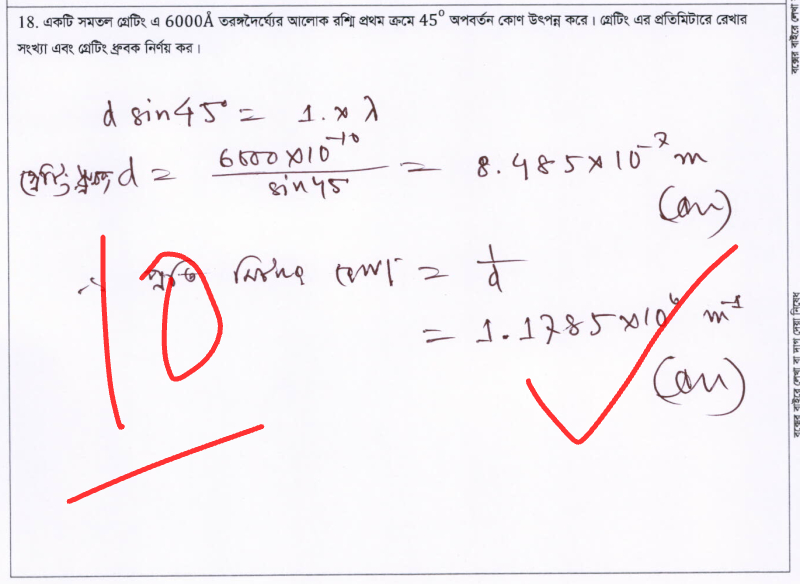 18. একটি সমতল গ্রেটিং এ 6000Å তরঙ্গদৈর্ঘ্যের আলোক রশ্মি প্রথম ক্রমে 45⁰ অপবর্তন কোণ উৎপন্ন করে। গ্রেটিং এর প্রতিমিটারে রেখার
সংখ্যা এবং গ্রেটিং ধ্রুবক নির্ণয় কর।
d sin45° = 1. × λ
গ্রেটিং ধ্রুবক, d = 6000×10⁻¹⁰ / sin45 = 8.485×10⁻⁷ m
(Ans)
∴ প্রতি মিটারে রেখা = 1/d
= 1.1785×10⁶ m⁻¹
(Ans)
10
বক্সের বাইরে লেখা
বক্সের বাইরে লেখা বা দাগ দেয়া নিষেধ